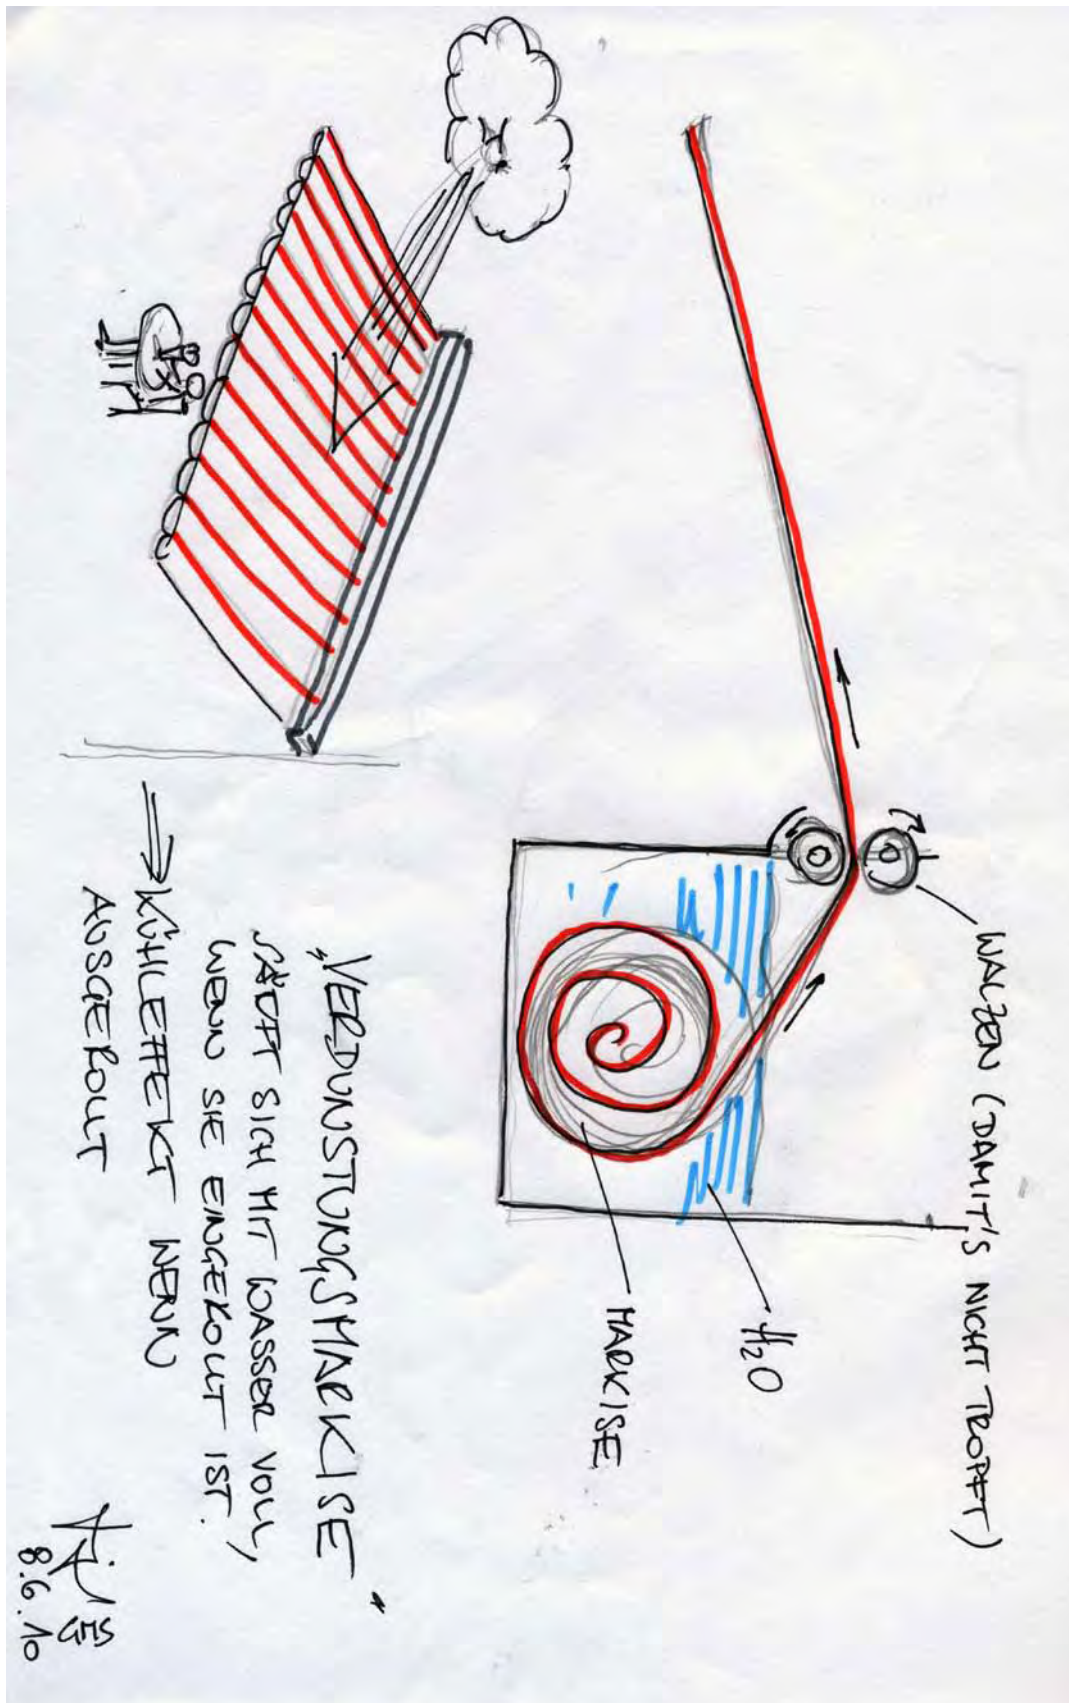 WALZEN (DAMIT'S NICHT TROPFT)
H₂O
MARKISE
„VERDUNSTUNGSMARKISE"
SÄUFT SICH MIT WASSER VOLL,
WENN SIE EINGEROLLT IST.
⇒ KÜHLEFFEKT WENN
AUSGEROLLT
8.6.10